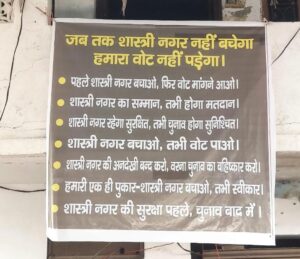 जब तक शास्त्री नगर नहीं बचेगा
हमारा वोट नहीं पड़ेगा।
पहले शास्त्री नगर बचाओ, फिर वोट मांगने आओ।
शास्त्री नगर का सम्मान, तभी होगा मतदान।
शास्त्री नगर रहेगा सुरक्षित, तभी चुनाव होगा सुनिश्चित।
शास्त्री नगर बचाओ, तभी वोट पाओ।
शास्त्री नगर की अनदेखी बन्द करो, वरना चुनाव का बहिष्कार करो।
हमारी एक ही पुकार-शास्त्री नगर बचाओ, तभी स्वीकार।
शास्त्री नगर की सुरक्षा पहले, चुनाव बाद में ।